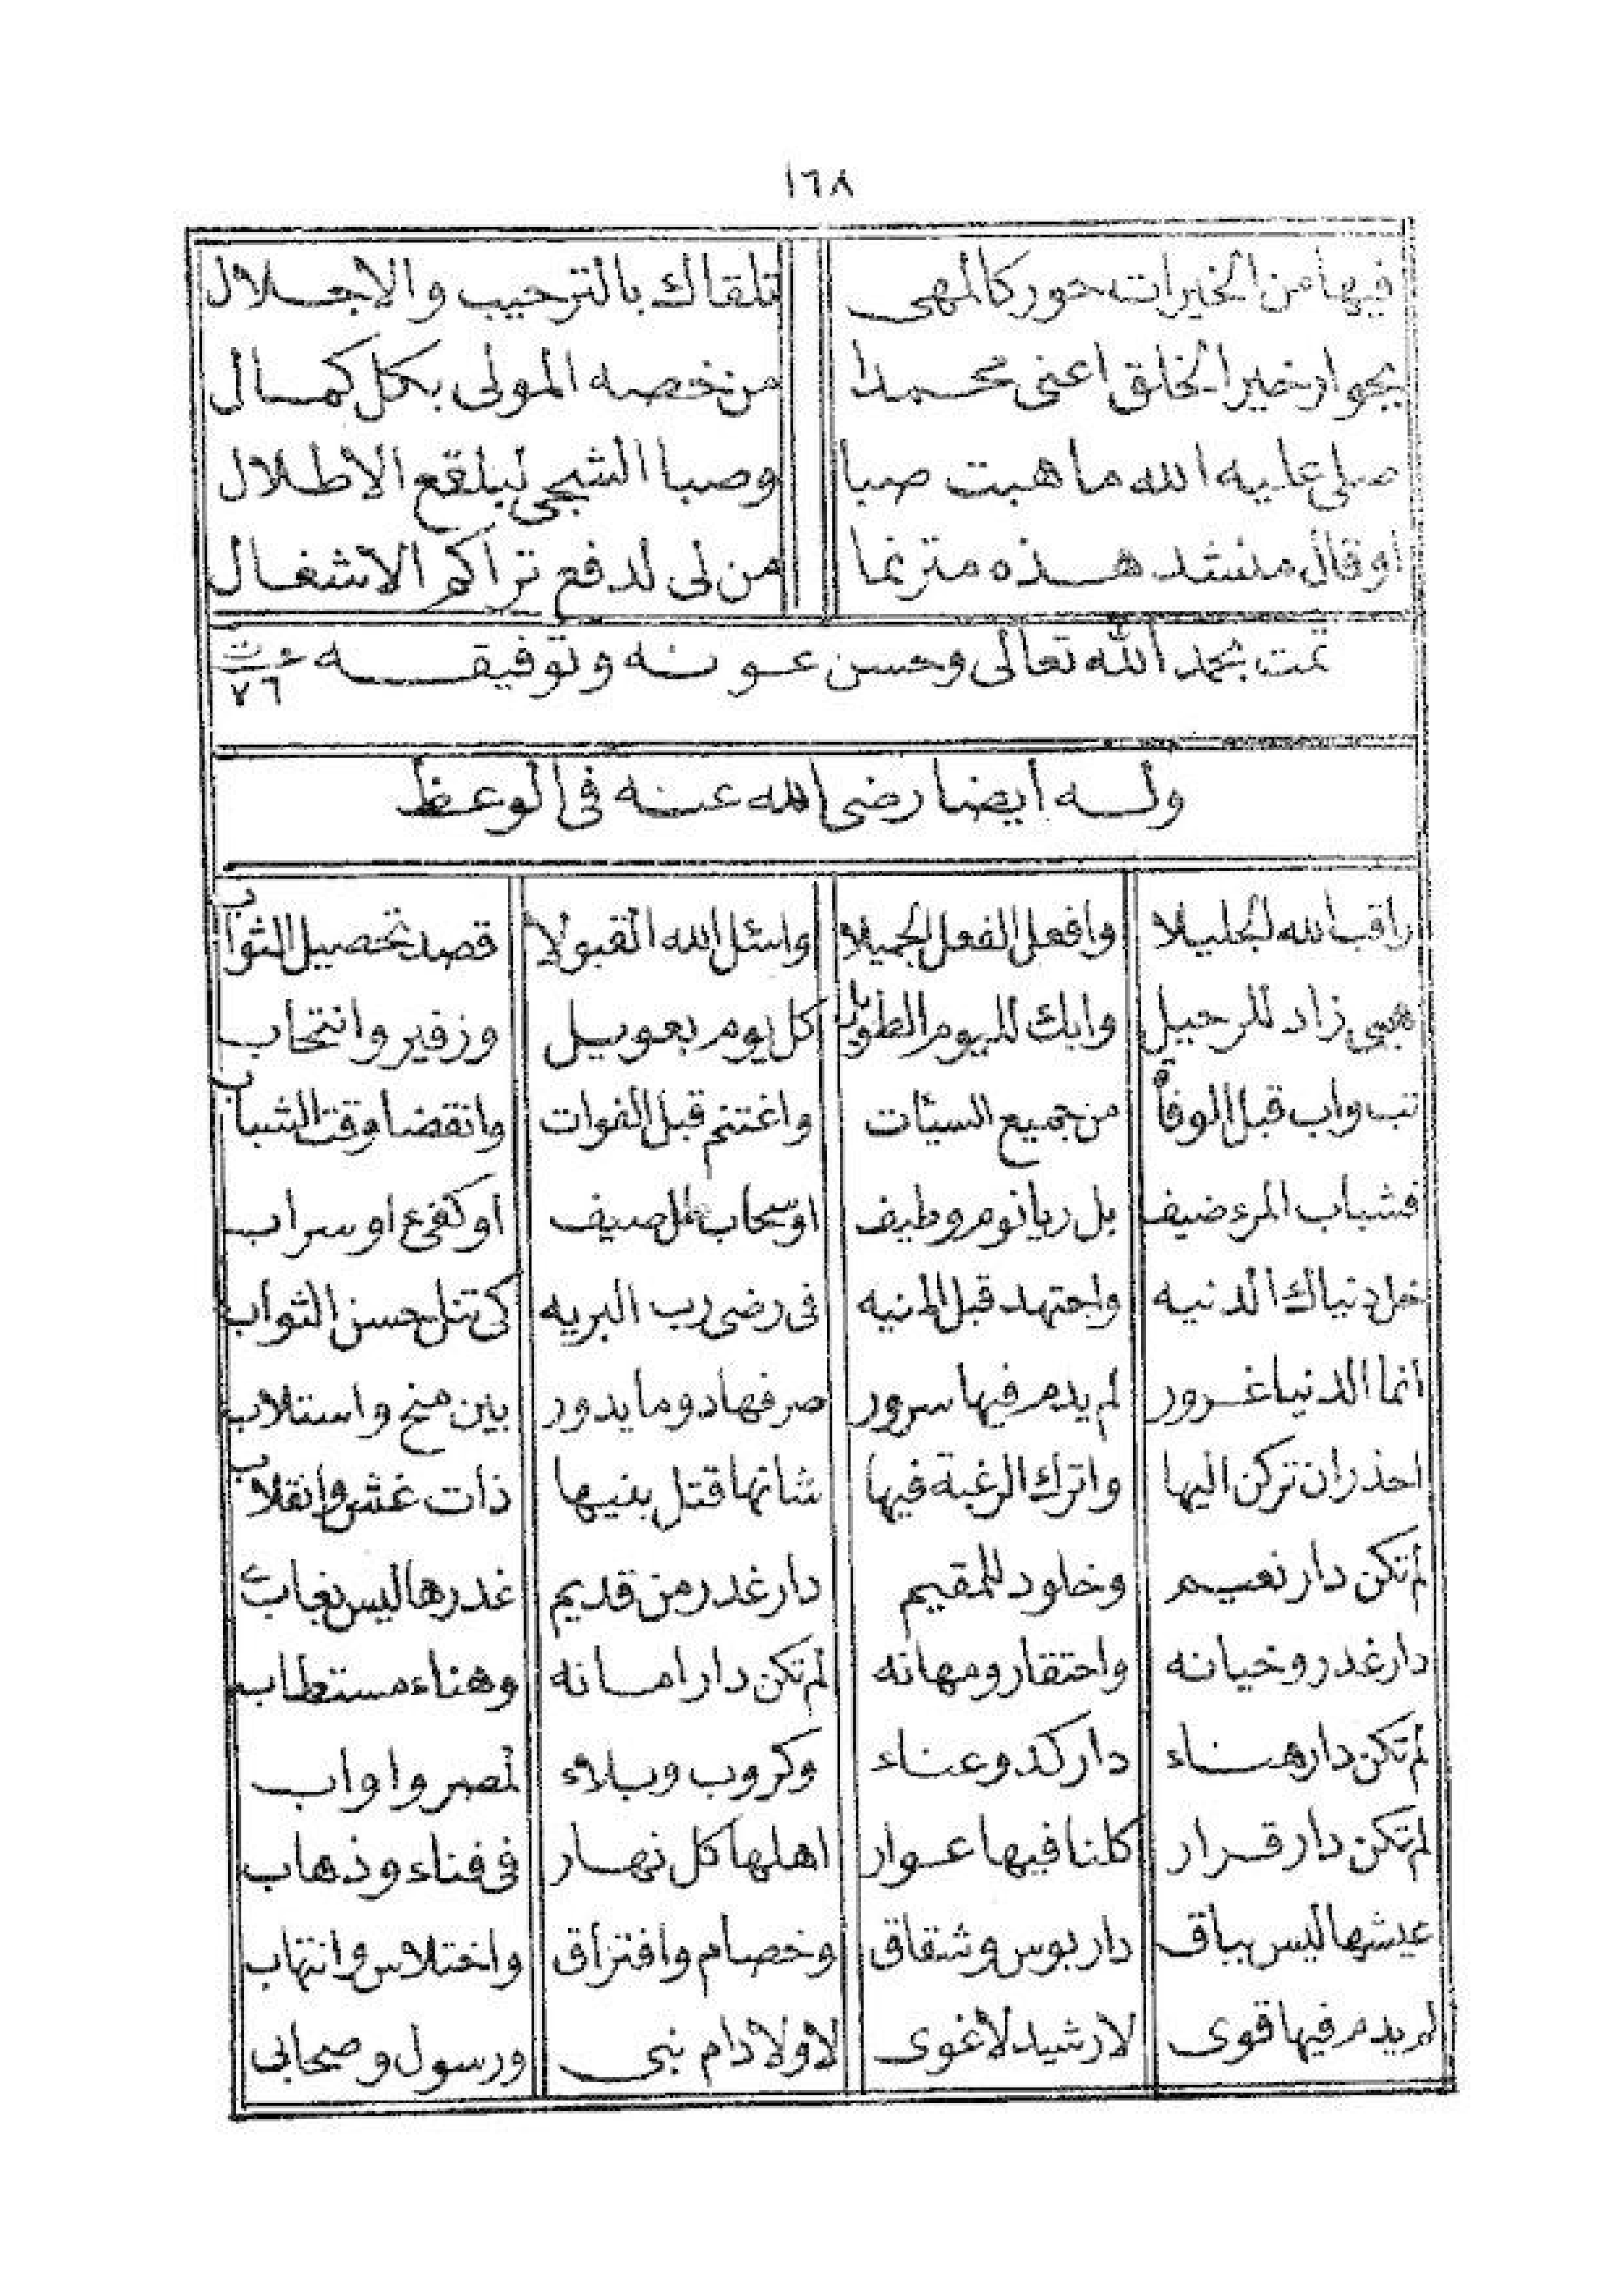 ١٦٨
فيها من الخيرات حور كالمهى تلقاك بالترحيب والاجلال
بجوار خير الخلق اعنى محمدا من خصه المولى بكل كمال
صلى عليه الله ما هبت صبا وصبا الشجي لبلقع الاطلال
او قال منشد هذه مترنما من لى لدفع تراكم الاشغال
تمت بحمد الله تعالى وحسن عونه وتوفيقه ٧٦
وله أيضا رضى الله عنه فى الوعظ
راقب الله الجليلا وافعل الفعل الجميلا واسئل الله القبولا قصد تحصيل الثواب
هيى زاد للرحيل وابك لليوم الطويل كل يوم بعويل وزفير وانتحاب
تب واب قبل الوفاة من جميع السيئات واغتنم قبل الفوات وانقضا وقت الشباب
فشباب المرء ضيف بل ريا نوم وطيف او سحاب صيف او كفيء او سراب
خل دنياك الدنيه واجتهد قبل المنيه فى رضى رب البريه كى تنل حسن الثواب
انما الدنيا غرور لم يدم فيها سرور صرفها دوما يدور بين منح واستلاب
احذر ان تركن اليها واترك الرغبة فيها شانها قتل بنيها ذات غش وانقلاب
لم تكن دار نعيم وخلود للمقيم دار غدر من قديم غدرها ليس بغاب
دار غدر وخيانه واحتقار ومهانه لم تكن دار امانه وهناء مستطاب
لم تكن دار هناء دار كد وعناء وكروب وبلاء لمصر واواب
لم تكن دار قرار كلنا فيها عوار اهلها كل نهار فى فناء وذهاب
عيشها ليس بباق دار بوس وشقاق وخصام وافتراق واختلاس وانتهاب
لم يدم فيها قوى لا رشيد لا غوى لا ولا دام نبى ورسول وصحابى